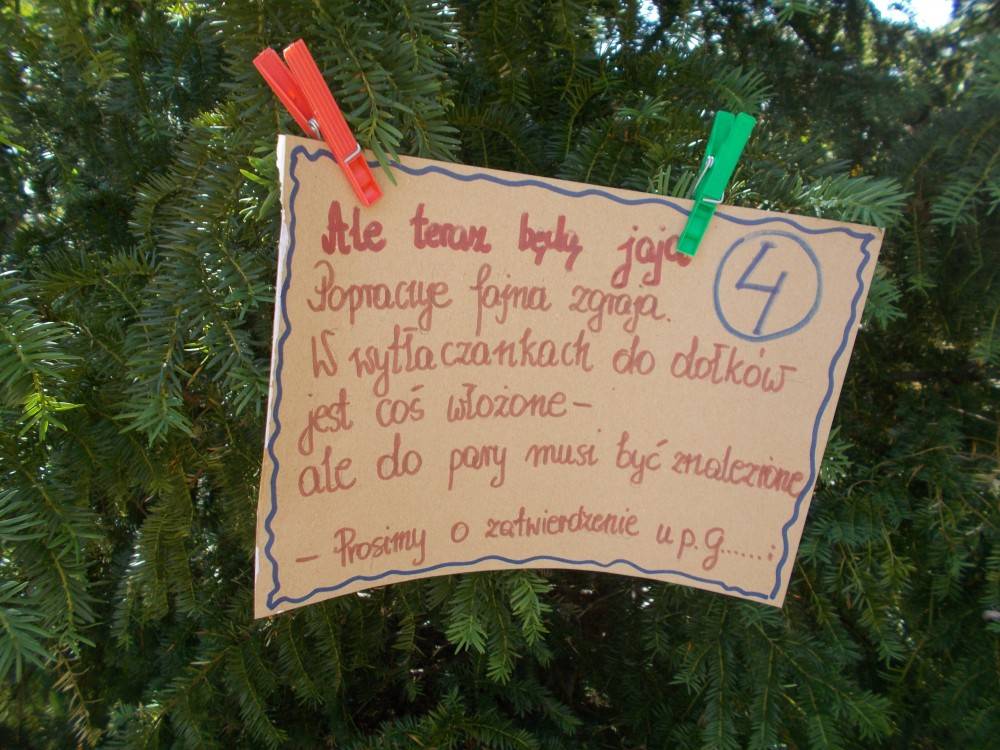 Ale teraz będą jaja
4
Popracuje fajna zgraja.
W wytłaczankach do dołków
jest coś włożone-
ale do pary musi być znalezione
- Prosimy o zatwierdzenie u p. G......;